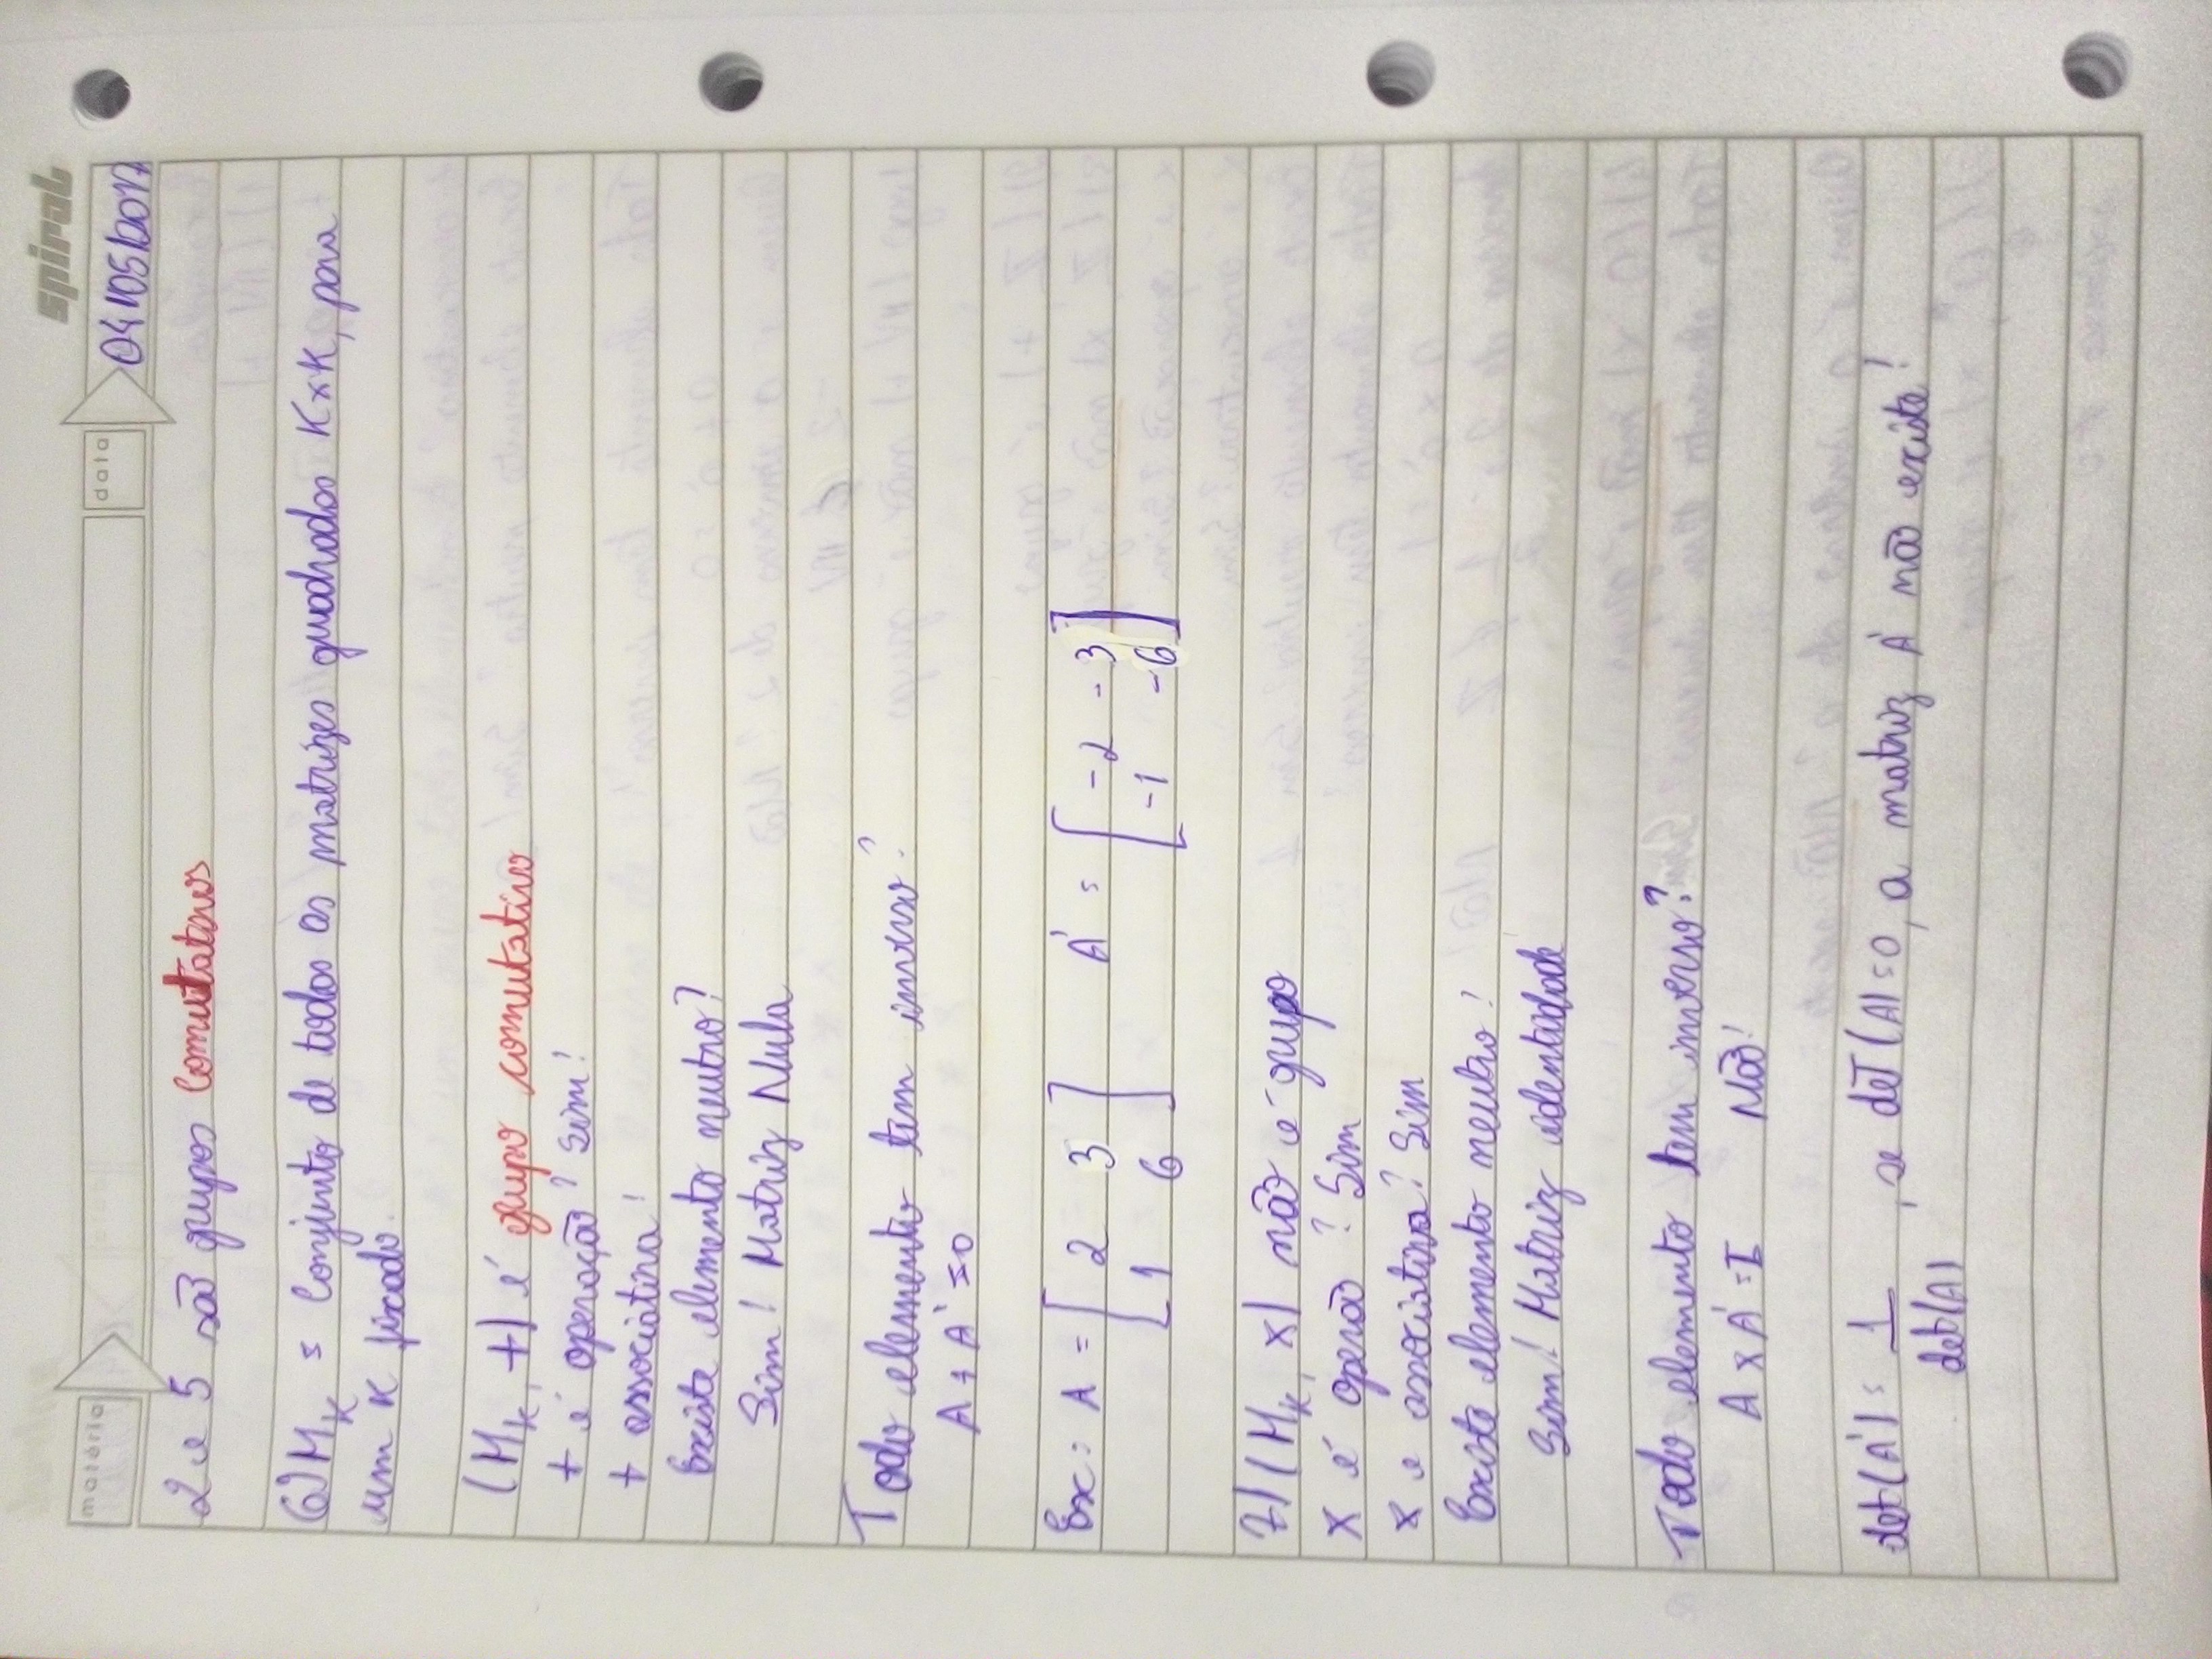 spiral
matéria data 04/05/2017
2 e 5 são grupos comutativos
6) M_K = Conjunto de todas as matrizes quadradas K×K, para
um K fixado.
(M_K, +) é grupo comutativo
+ é operação? Sim!
+ associativa!
Existe elemento neutro?
Sim! Matriz Nula
Todo elemento tem inverso?
A + A' = 0
Ex: A = [ 2 3 ] A' = [ -2 -3 ]
[ 1 6 ] [ -1 -6 ]
7) (M_K, x) não é grupo
x é operão? Sim
x e associativa? Sim
Existe elemento neutro!
Sim! Matriz identidade
Todo elemento tem inverso?
A x A' = I Não!
det(A') = 1/det(A), se det(A) = 0, a matriz A' não existe!